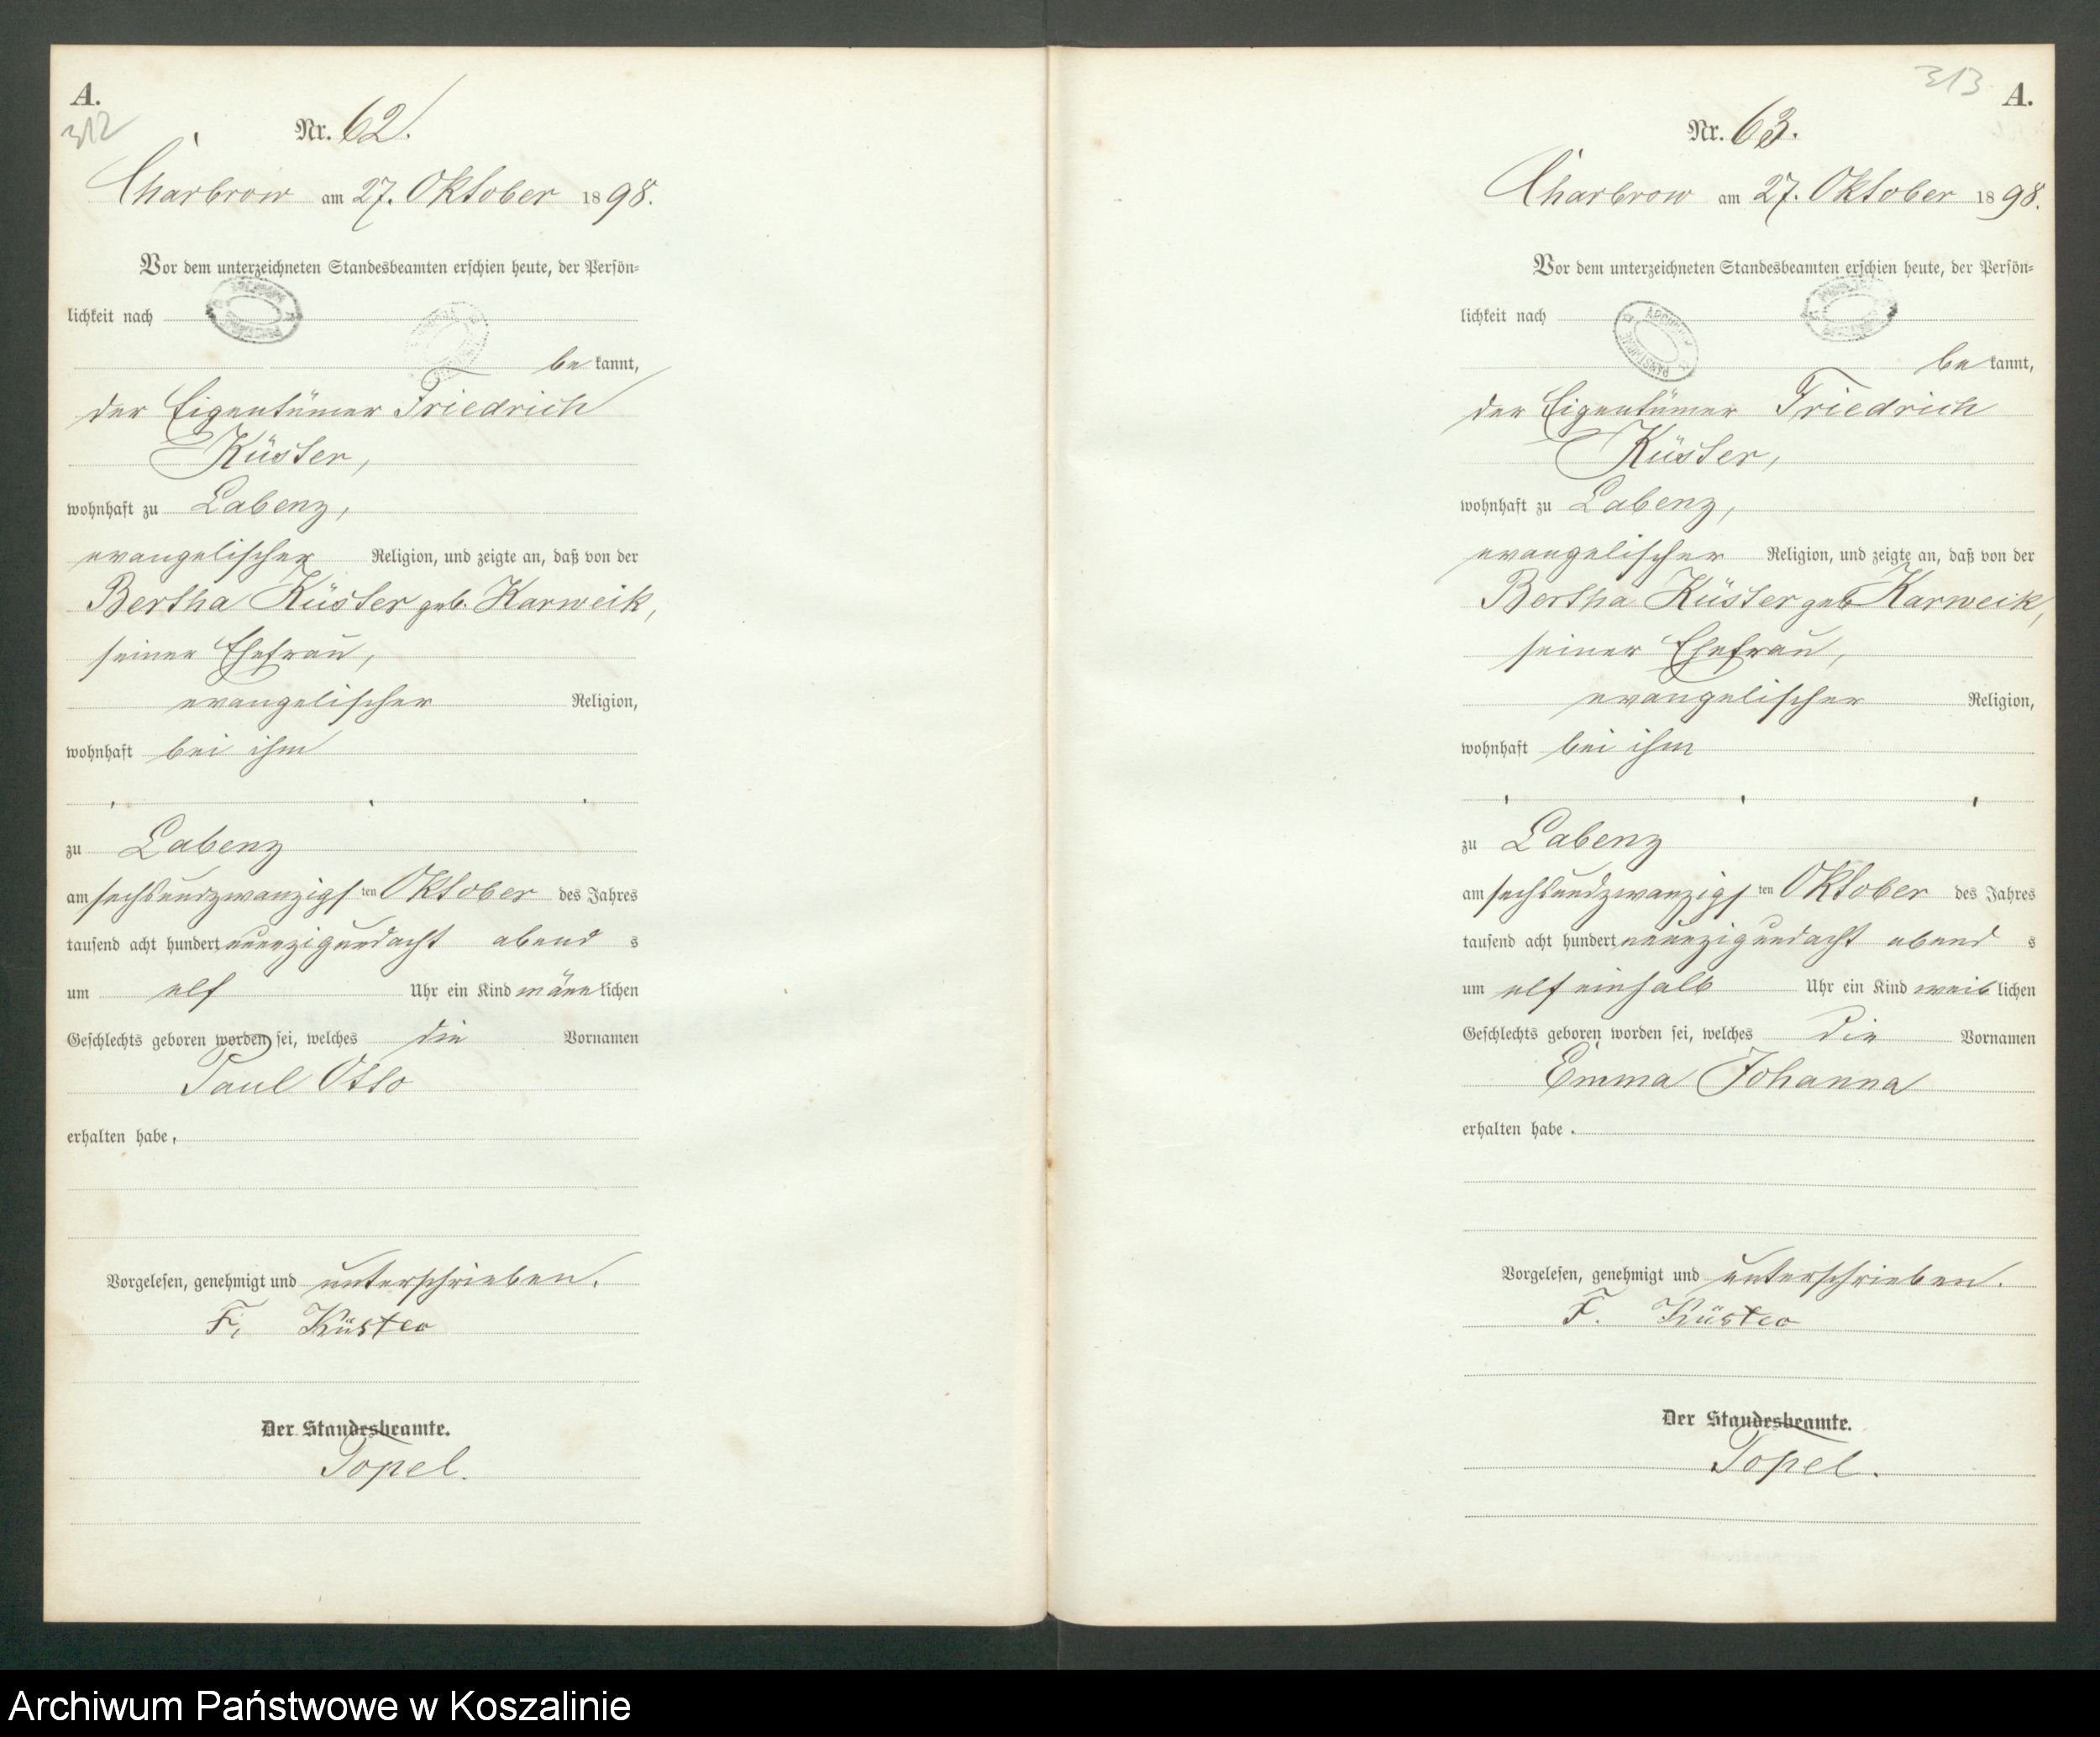 A.
312
Nr. 62.
Charbrow am 27. Oktober 1898.
Vor dem unterzeichneten Standesbeamten erschien heute, der Persön-
lichkeit nach
bekannt,
der Eigentümer Friedrich
Küster,
wohnhaft zu Labenz,
evangelischer Religion, und zeigte an, daß von der
Bertha Küster geb. Karweik,
seiner Ehefrau,
evangelischer Religion,
wohnhaft bei ihm
zu Labenz
am sechsundzwanzigsten Oktober des Jahres
tausend acht hundert neunzigundacht abends
um elf Uhr ein Kind männlichen
Geschlechts geboren worden sei, welches die Vornamen
Paul Otto
erhalten habe.
Vorgelesen, genehmigt und unterschrieben.
F. Küster
Der Standesbeamte.
Topel.
313
A.
Nr. 63.
Charbrow am 27. Oktober 1898.
Vor dem unterzeichneten Standesbeamten erschien heute, der Persön-
lichkeit nach
bekannt,
der Eigentümer Friedrich
Küster,
wohnhaft zu Labenz,
evangelischer Religion, und zeigte an, daß von der
Bertha Küster geb Karweik,
seiner Ehefrau,
evangelischer Religion,
wohnhaft bei ihm
zu Labenz
am sechsundzwanzigsten Oktober des Jahres
tausend acht hundert neunzigundacht abends
um elfeinhalb Uhr ein Kind weiblichen
Geschlechts geboren worden sei, welches die Vornamen
Emma Johanna
erhalten habe.
Vorgelesen, genehmigt und unterschrieben.
F. Küster
Der Standesbeamte.
Topel.
Archiwum Państwowe w Koszalinie